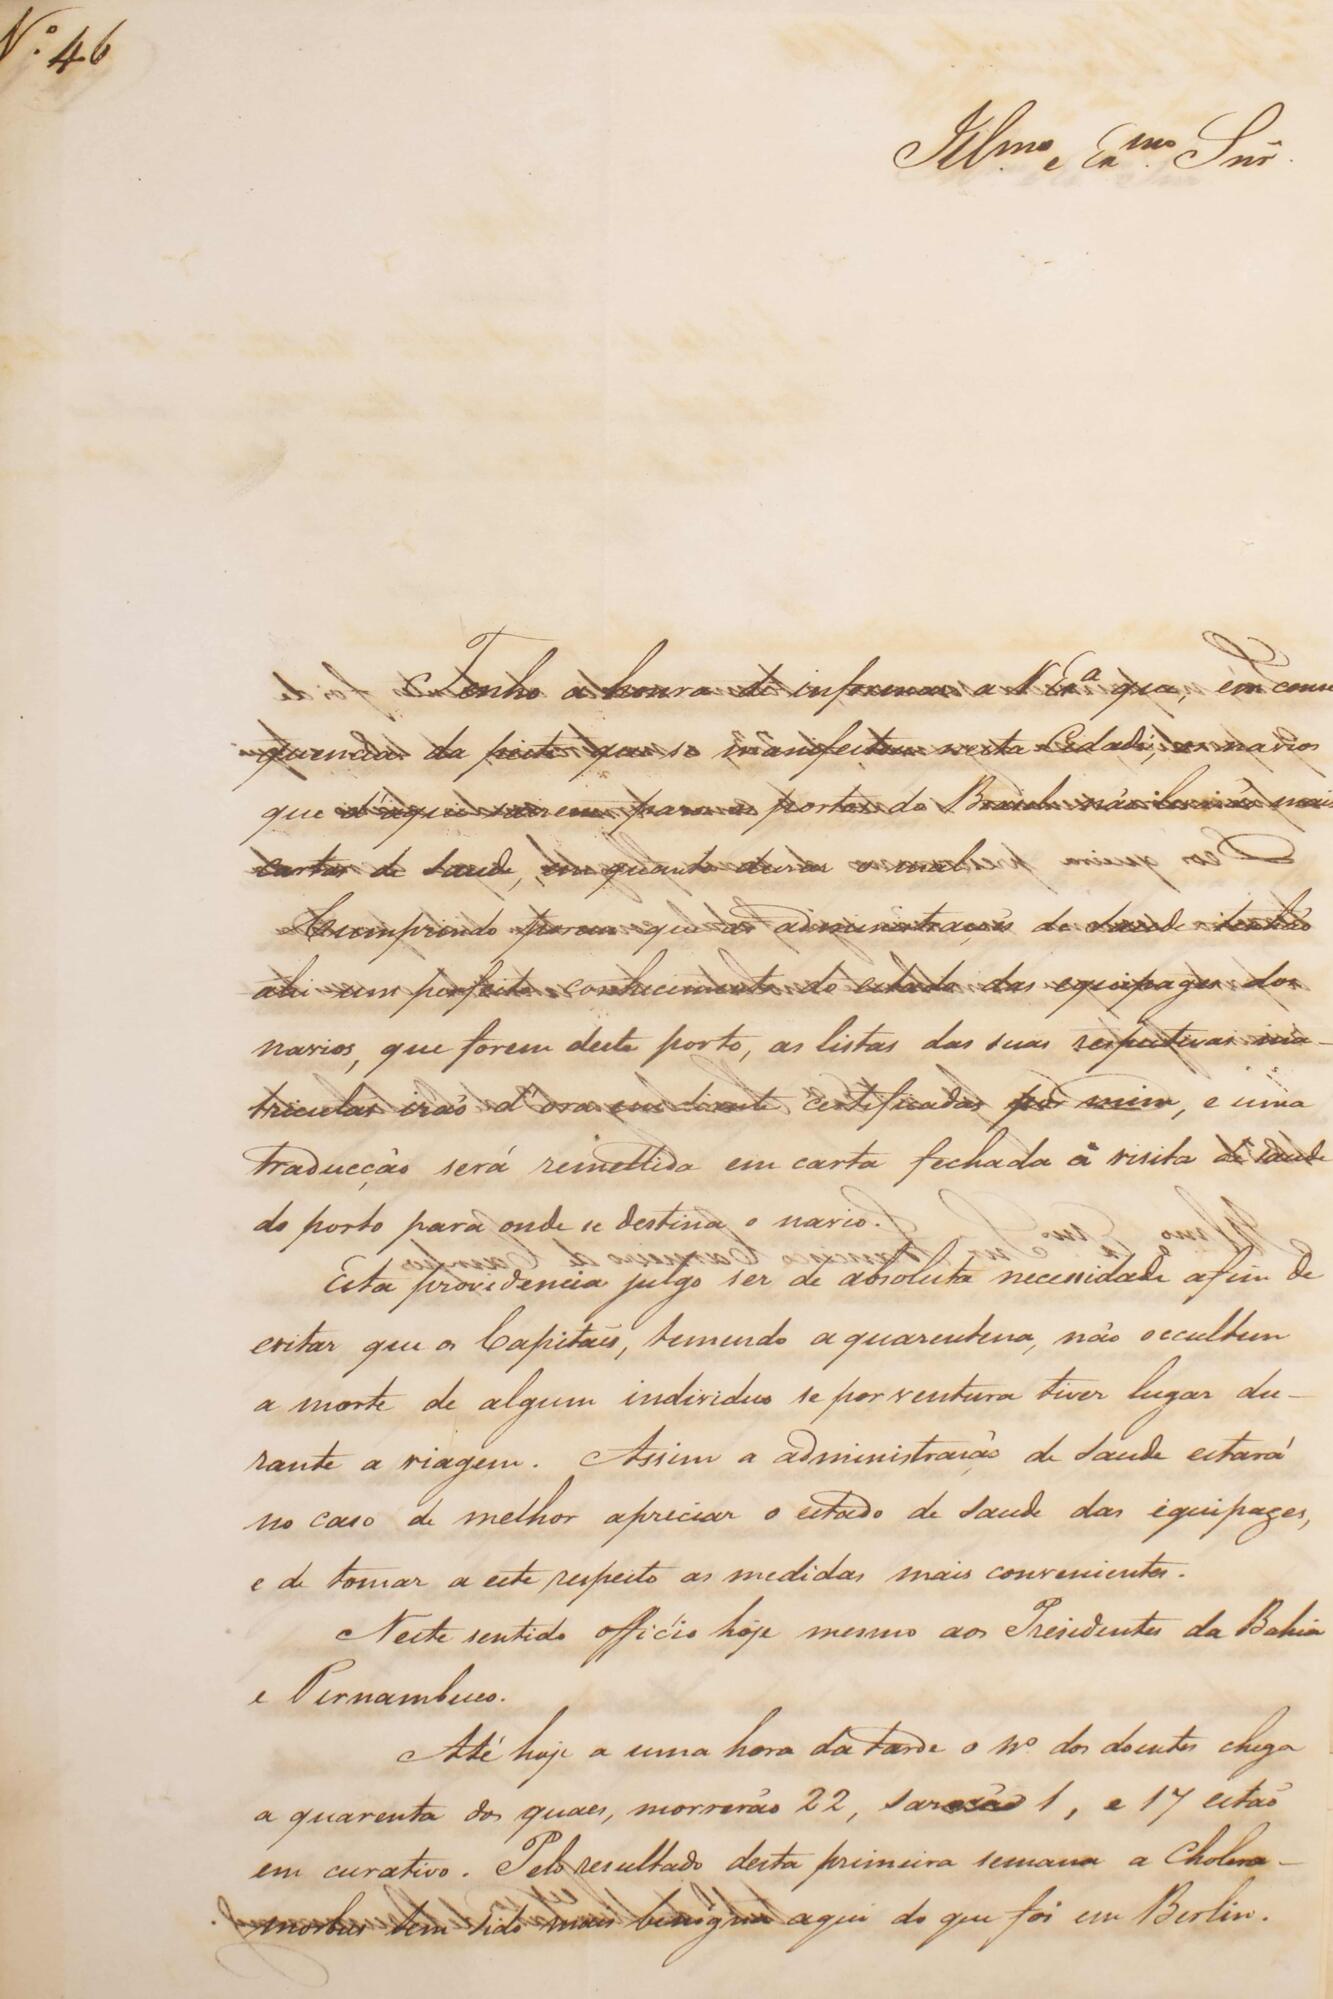 Nº 46
Illmo e Exmo Snr.
Tenho a honra de informar a V Exª que, em conse
quencia da peste que se manifestou nesta Cidade, os navios
que d'aqui sairem para os portos do Brasil não levarão mais
cartas de Saude, em quanto durar o mal.
Cumprindo porem que as administraçoẽs de Saude tenhão
ahi um perfeito conhecimento do estado das equipages dos
navios, que forem deste porto, as listas das suas respectivas ma-
triculas irão d'ora em diante certificadas por mim, e uma
traducção será remettida em carta fechada á visita de Saude
do porto para onde se destina o navio.
Esta providencia julgo ser de absoluta necessidade afim de
evitar que os Capitaẽs, temendo a quarentena, não occultem
a morte de algum individuo se por ventura tiver lugar du-
rante a viagem. Assim a administração de Saude estará
no caso de melhor apreciar o estado de Saude das equipages,
e de tomar a este respeito as medidas mais convenientes.
Neste sentido officio hoje mesmo aos Presidentes da Bahia
e Pernambuco.
Até hoje a uma hora da tarde o nº dos doentes chega
a quarenta dos quaes, morrerão 22, sararão 1, e 17 estão
em curativo. Pelo resultado desta primeira semana a Cholera-
morbus tem sido mais benigna aqui do que foi em Berlin.